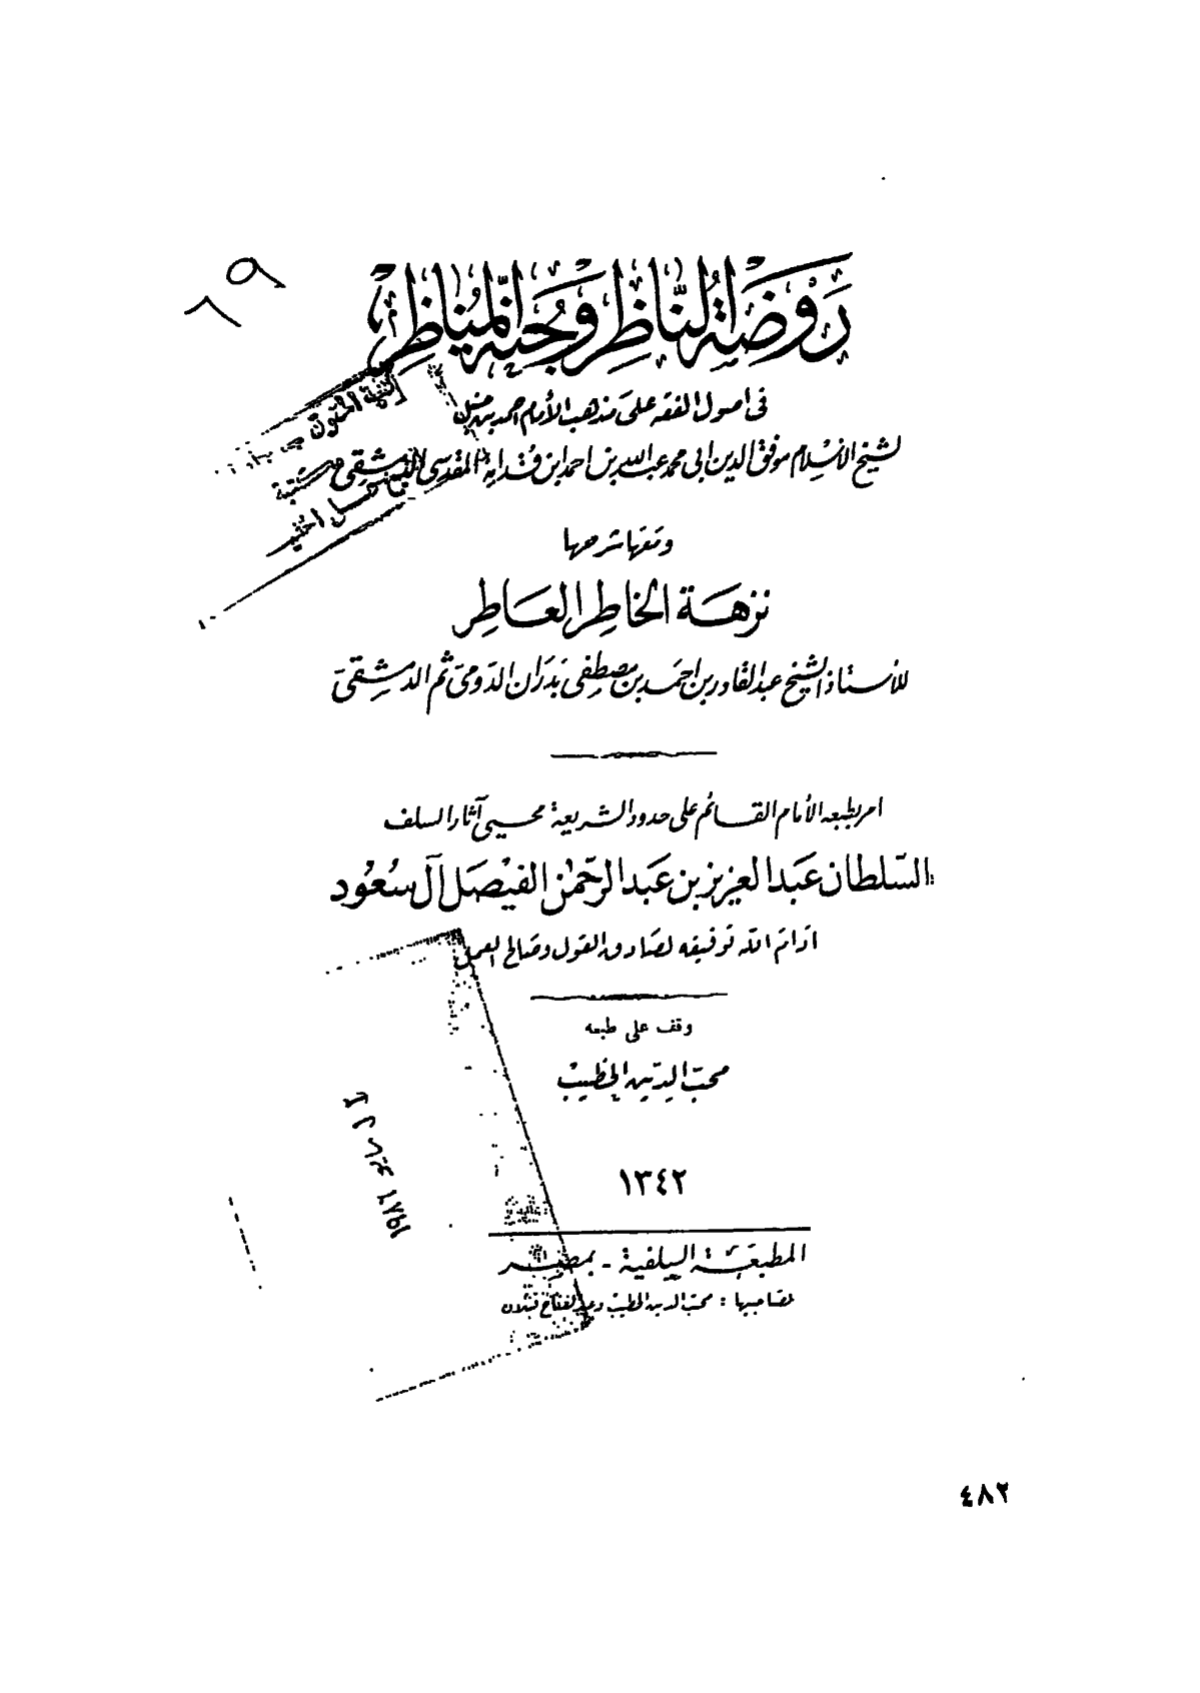 رَوضَة النَّاظِر وَجُنّة المُناظِر
فى اصول الفقه على مذهب الأمام احمد بن حنبل
لشيخ الاسلام موفق الدين ابى محمد عبد الله بن احمد ابن قُدامة المقدسى الدمشقى
ومَعَها شرحها
نزهَة الخاطِر العَاطِر
للأستاذ الشيخ عبد القادر بن احمَد بن مصطفى بَدرَان الدّومى ثم الدمشقى
امر بطبعه الأمام القائم على حدود الشريعة محيى آثار السلف
السّلطان عَبد العزيز بن عَبد الرحمٰن الفيْصَل آل سعُود
ادَامَ الله توفيقه لصَادق القول وصَالح العمل
وقف على طبعه
محبّ الدّين الخطيبْ
١٣٤٢
المطبَعَة السلفية - بمصْر
لصَاحبيها : محبّ الدين الخطيب وعبد الفتاح قتلان
٤٨٢